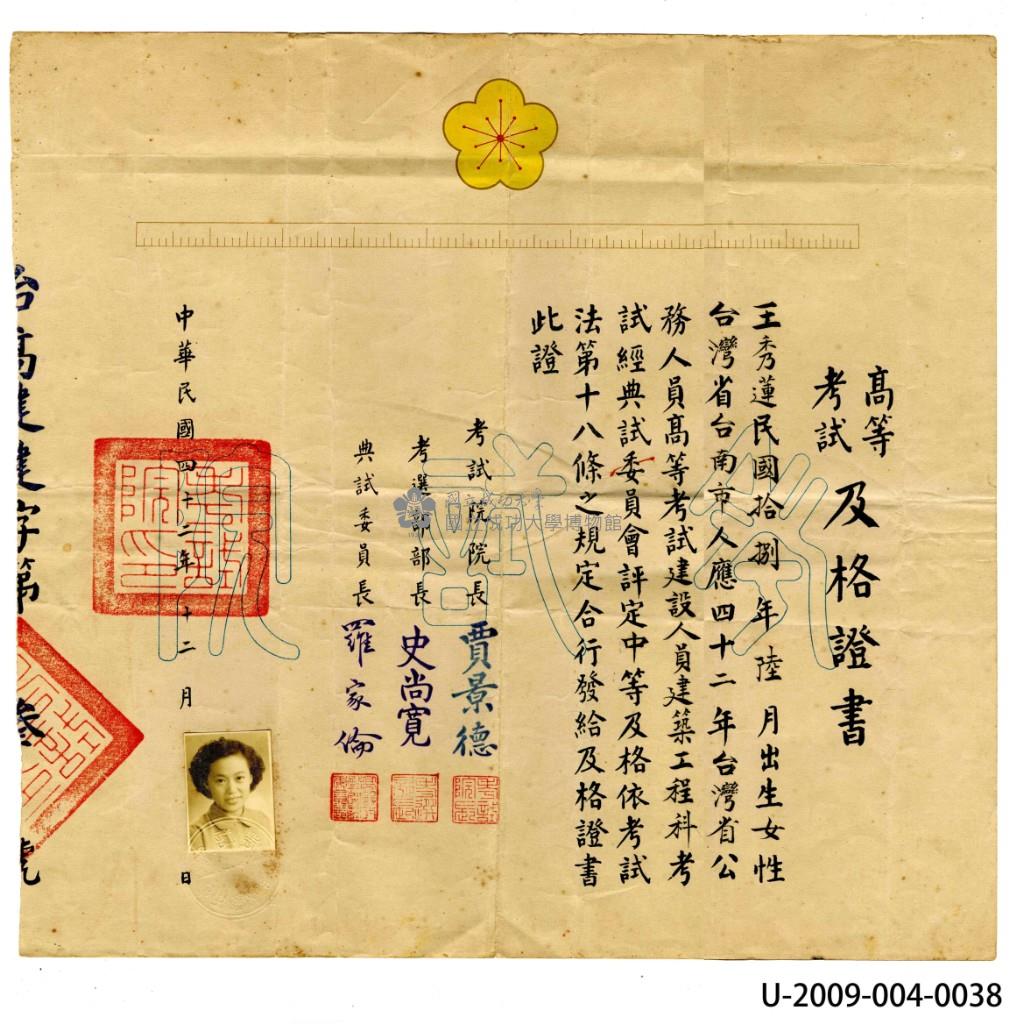 高等
考試
及格證書
王秀蓮民國拾捌年陸月出生女性
台灣省台南市人應四十二年台灣省公
務人員高等考試建設人員建築工程科考
試經典試委員會評定中等及格依考試
法第十八條之規定合行發給及格證書
此證
考試院院長 賈景德
考選部部長 史尚寬
典試委員長 羅家倫
中華民國四十二年十二月 日
台高建建字第叁號
國立成功大學
國立成功大學博物館
U-2009-004-0038